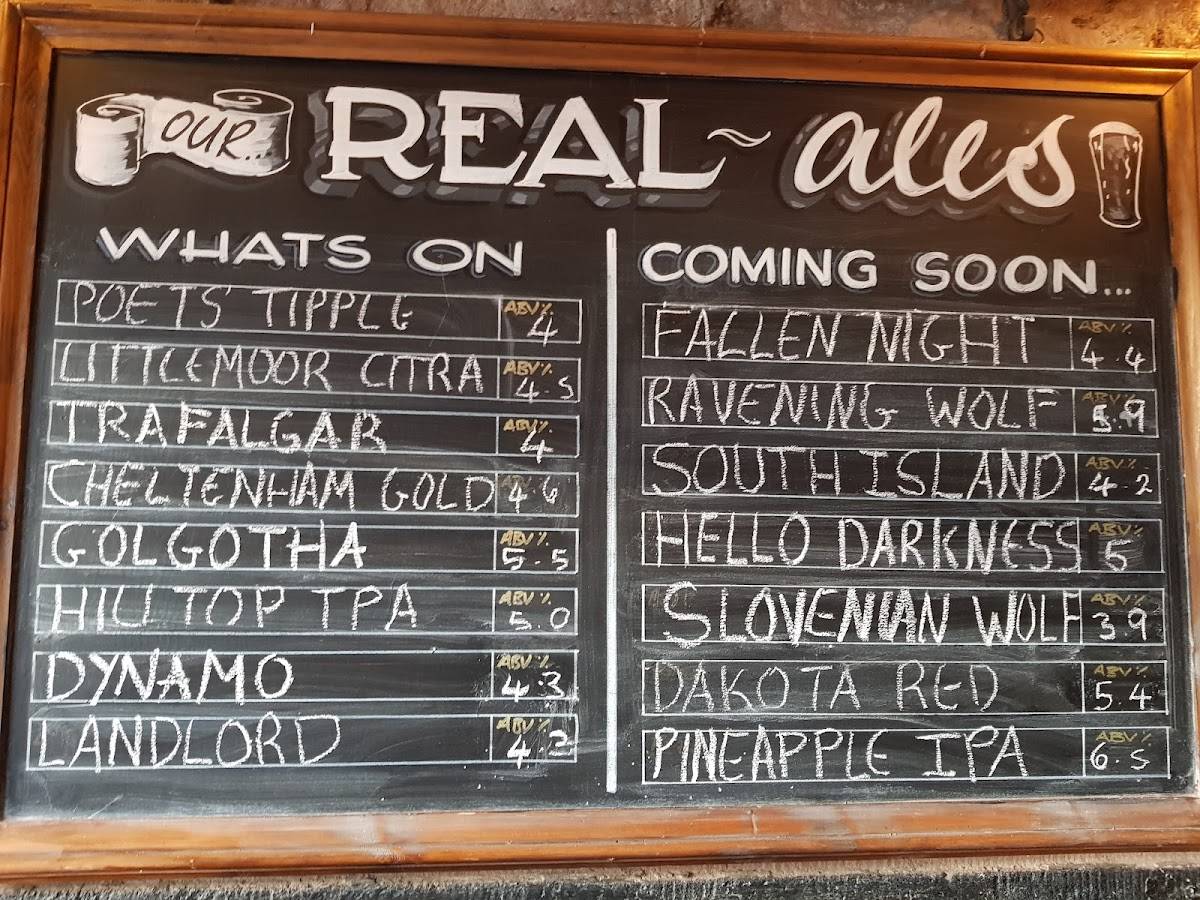 OUR... REAL ~ ales
WHATS ON
POETS' TIPPLE ABV% 4
LITTLEMOOR CITRA ABV% 4.5
TRAFALGAR ABV% 4
CHELTENHAM GOLD ABV% 4.6
GOLGOTHA ABV% 5.5
HILLTOP TPA ABV% 5.0
DYNAMO ABV% 4.3
LANDLORD ABV% 4.2
COMING SOON...
FALLEN NIGHT ABV% 4.4
RAVENING WOLF ABV% 5.9
SOUTH ISLAND ABV% 4.2
HELLO DARKNESS ABV% 5
SLOVENIAN WOLF ABV% 3.9
DAKOTA RED ABV% 5.4
PINEAPPLE IPA ABV% 6.5